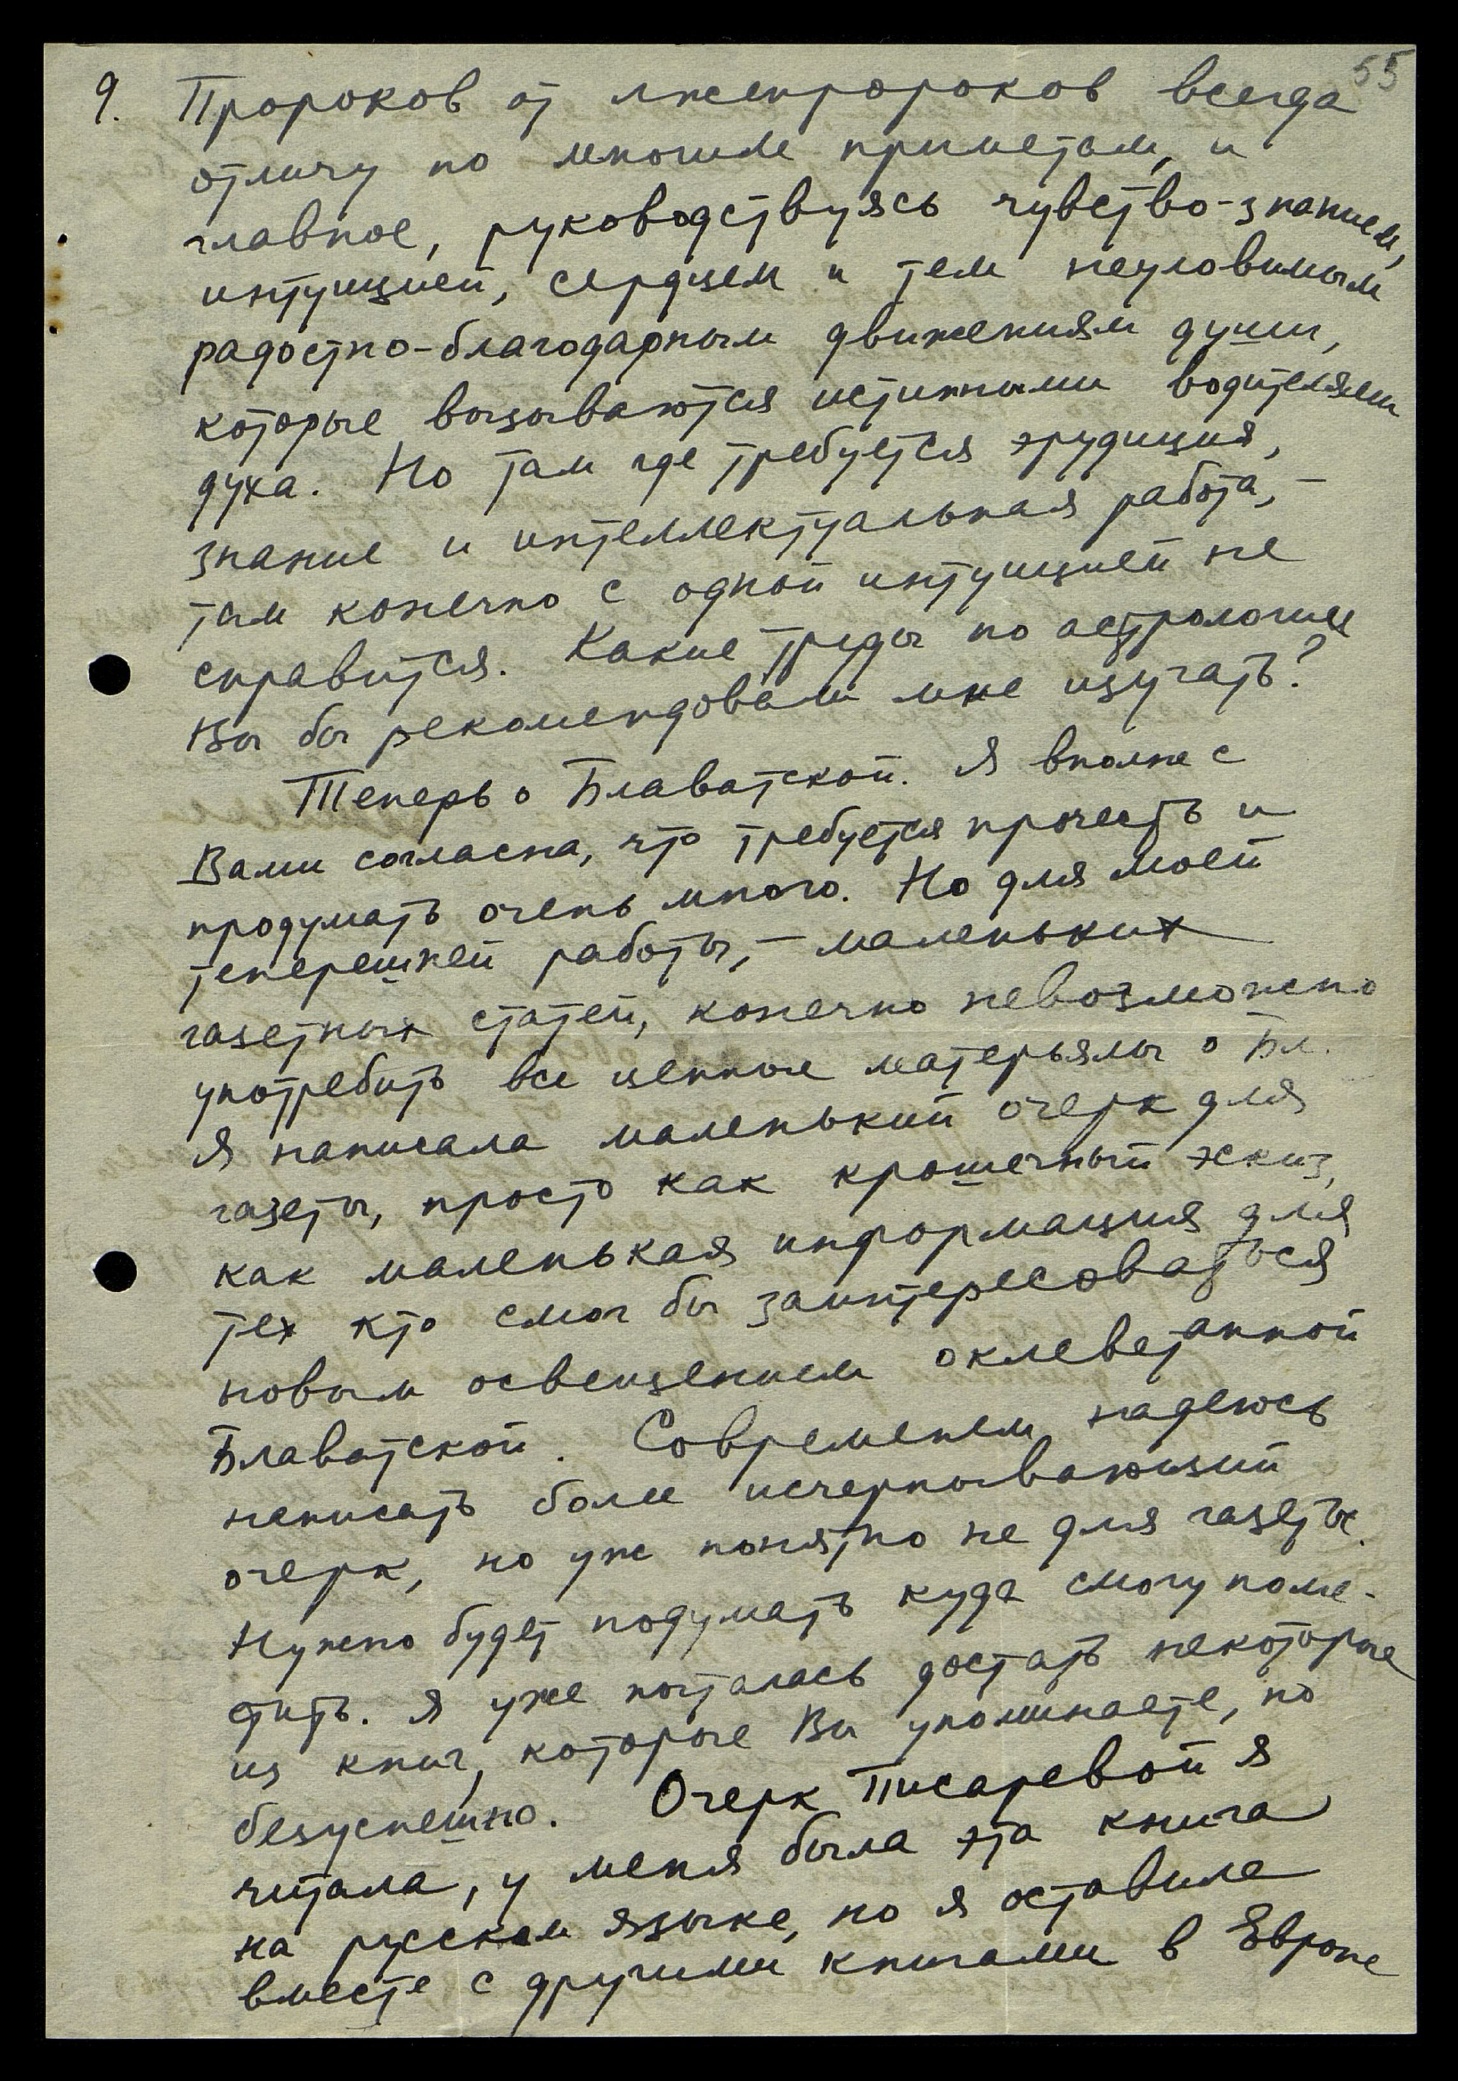 55
9. Пророков от лжепророков всегда
отличу по многим приметам, и
главное, руководствуясь чувство-знанием,
интуицией, сердцем и тем неуловимым
радостно-благодарным движениям души,
которые вызываются истинными водителями
духа. Но там где требуется эрудиция,
знание и интеллектуальная работа, –
там конечно с одной интуицией не
справится. Какие труды по астрологии
Вы бы рекомендовали мне изучать?
Теперь о Блаватской. Я вполне с
Вами согласна, что требуется прочесть и
продумать очень много. Но для моей
теперешней работы, – маленьких
газетных статей, конечно невозможно
употребить все ценные матерьялы о Бл.
Я написала маленький очерк для
газеты, просто как крошечный эскиз,
как маленькая информация для
тех кто смог бы заинтересоваться
новым освещением оклеветанной
Блаватской. Современем надеюсь
написать более исчерпывающий
очерк, но уже понятно не для газеты.
Нужно будет подумать куда смогу поме-
стить. Я уже пыталась достать некоторые
из книг, которые Вы упоминаете, но
безуспешно. Очерк Писаревой я
читала, у меня была эта книга
на русском языке, но я оставила
вместе с другими книгами в Европе